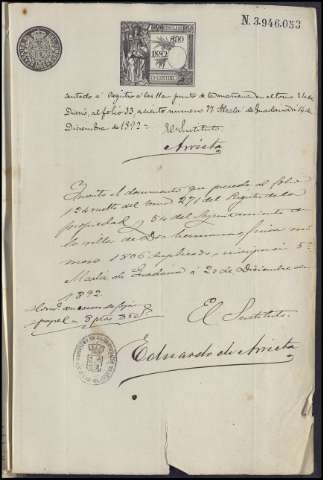 N. 3.946.053
1892
sentado á Registro á las 11 punto de la mañana en el tomo
Diario, al folio 33, asiento numero 77 Alcalá de Guadaira 14 de
Diciembre de 1892 =
El Sustituto
Arrieta
Inscrito el documento que precede al folio
124 vuelto del tomo 271 del Registro de la
propiedad y 54 del Ayuntamiento de
la villa de Dos hermanas finca nú-
mero 1806 duplicado, inscripcion 5ª
Alcalá de Guadaira á 20 de Diciembre de
1892
El Sustituto.
papel = 8 ptas 350
Eduardo de Arrieta